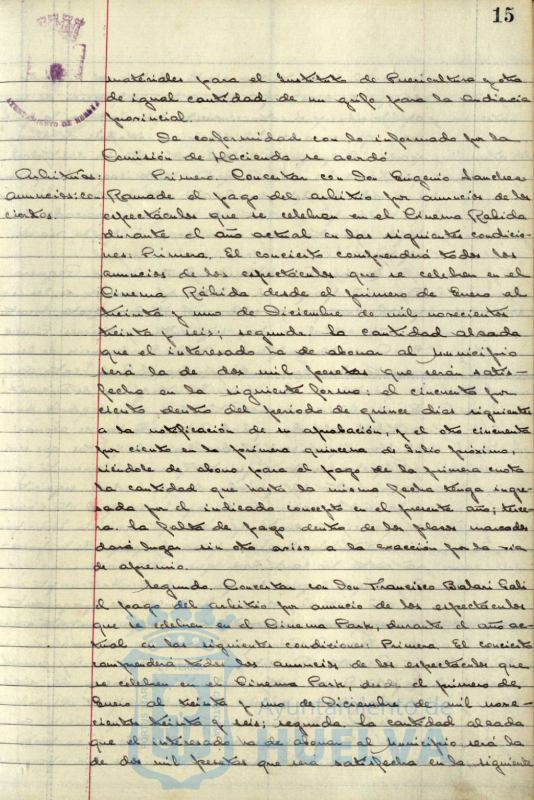 15
AYUNTAMIENTO DE HUELVA
materiales para el Instituto de Puericultura y otra
de igual cantidad de un grifo para la Audiencia
provincial.
De conformidad con lo informado por la
Comisión de Hacienda se acordó
Arbitrios:
anuncios: con
ciertos.
Primero. Concertar con Don Eugenio Sanchez
Ramade el pago del arbitrio por anuncios de los
espectáculos que se celebran en el Cinema Rabida
durante el año actual en las siguientes condicio-
nes: Primera. El concierto comprenderá todos los
anuncios de los espectáculos que se celebren en el
Cinema Rábida desde el primero de Enero al
treinta y uno de Diciembre de mil novecientos
treinta y seis; segunda. la cantidad alzada
que el interesado ha de abonar al Municipio
será la de dos mil pesetas que serán satis-
fecha en la siguiente forma: el cincuenta por
ciento dentro del periodo de quince dias siguientes
a la notificación de su aprobación, y el otro cincuenta
por ciento en la primera quincena de Julio próximo,
siéndole de abono para el pago de la primera cuota
la cantidad que hasta la misma fecha tenga ingre-
sada por el indicado concepto en el presente año; terce-
ra. la falta de pago dentro de los plazos marcados
dará lugar sin otro aviso a la exacción por la via
de apremio.
Segundo. Concertar con Don Francisco Balari Gali
el pago del arbitrio por anuncio de los espectáculos
que se celebren en el Cinema Park, durante el año ac-
tual en las siguientes condiciones: Primera. El concierto
comprenderá todos los anuncios de los espectaculos que
se celebren en el Cinema Park, desde el primero de
Enero al treinta y uno de Diciembre de mil nove-
cientos treinta y seis; segunda. la cantidad alzada
que el interesado ha de abonar al Municipio será la
de dos mil pesetas que será satisfecha en la siguiente
Ayuntamiento de
HUELVA